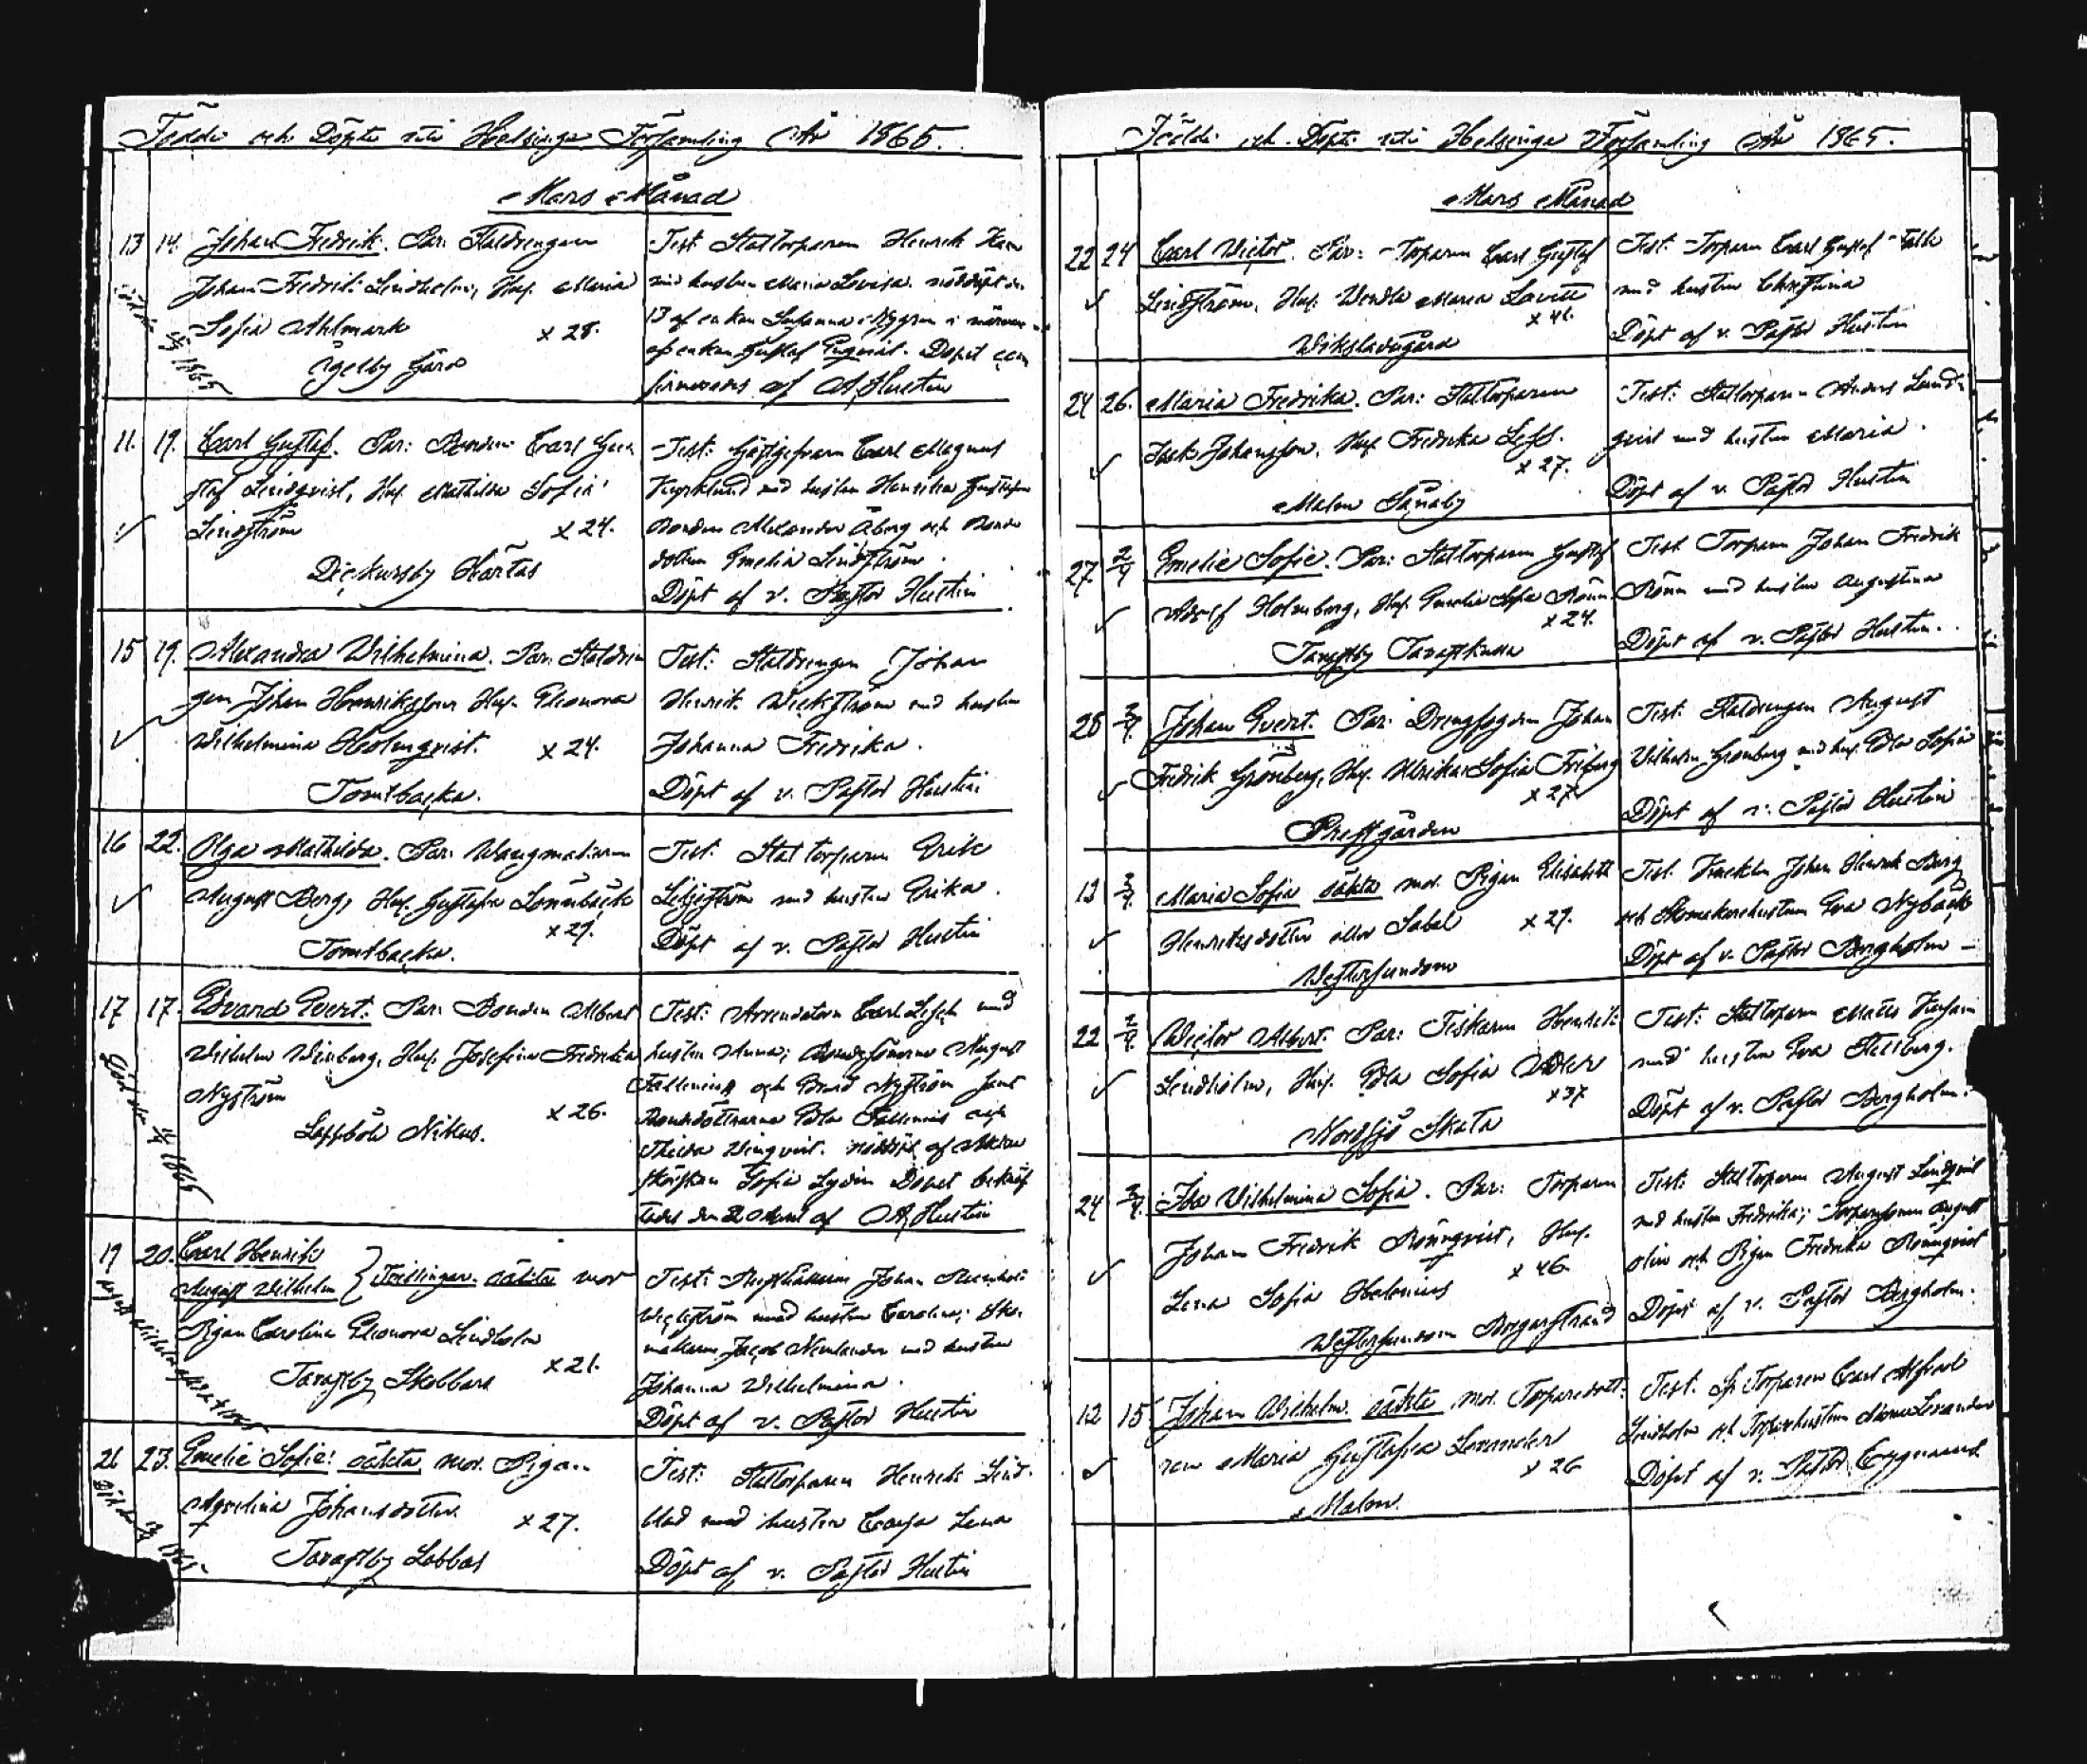 Födde och Döpte uti Helsinge Församling År 1865.
Mars Månad
13 14. Johan Fredrik. Par: Staldrengen
Johan Fredrik Lindholm, Hus. Maria
Sofia Ahlmark x 28.
1865
Gård
Test Stattorparen Henrik
med hustru Maria Lovisa. nöddöpt den
13 af enkan Susanna i närvaro
af enkan Gustaf. Dopet con
firmerades af A. Hustin
11. 19. Carl Gustaf. Par: Bonden Carl Gus
taf Lindqvist, Hus. Mathilda Sofia
Lindström x 24.
Dickursby Hårtas
Test: Gästgifvaren Carl Magnus
Kyrklund med hustru Henrika Gustafva
Bonden Alexander Åberg och Bonde
dottren Emelia Lindström.
Döpt af v. Pastor Hustin
15 19. Alexandra Wilhelmina. Par: Staldren
gen Johan Henriksson Hus. Eleonora
Wilhelmina Holmqvist. x 24.
Tomtbacka.
Test: Staldrengen Johan
Henrik Wickström med hustru
Johanna Fredrika.
Döpt af v. Pastor Hustin
16 22. Olga Mathilda. Par: Wangmakaren
August Berg, Hus. Gustafva Lönnbäck
x 29.
Tomtbacka.
Test: Stattorparen Erik
Liljeström med hustru Erika.
Döpt af v. Pastor Hustin
17 17. Edvard Evert. Par: Bonden Albert
Wilhelm Winberg, Hus. Josefina Fredrika
Nyström x 26.
Lappböle Nikus.
Död den 1865
Test: Arrendatorn Carl med
hustru Anna; Bondesönerne August
Fallenius och Nyström samt
Bondedöttrarna Edla Fallenius och
Winqvist. nöddöpt af
Sofia Lydén Dopet bekräf
tades den 2 April af A. Hustin
19 20. Carl Henrik
August Wilhelm } Tvillingar. oäkta mor
Pigan Carolina Eleonora Lindholm
x 21.
Tavastby Skobbars
August Wilhelm
Test: Johan
Wickström med hustru Carolina; Sko
makaren Jacob Nenlander med hustru
Johanna Wilhelmina.
Döpt af v. Pastor Hustin
21 23. Emelie Sofie: oäkta, mor. Pigan
Johansdotter. x 27.
Tavastby Lobbas
Död den 1865
Test: Stattorparen Henrik Lind-
blad med hustru Cajsa Lena
Döpt af v. Pastor Hustin
Födde och Döpte uti Helsinge Församling År 1865.
Mars Månad
22 24 Carl Wictor. Par: Torparen Carl Gustaf
Lindström, Hus. Wendla Maria
x 41.
Wiksladugård
Test: Torparen Carl Gustaf
med hustru Christina
Döpt af v. Pastor Hustin
24 26. Maria Fredrika. Par: Stattorparen
Isak Johansson, Hus. Fredrika
x 27.
Malm
Test: Stattorparen Anders Lind
qvist med hustru Maria.
Döpt af v. Pastor Hustin
27 2/4 Emelie Sofie. Par: Stattorparen Gustaf
Adolf Holmberg, Hus. Emelie Sofia Rönn
x 24.
Tavastby Tavastkulla
Test Torparen Johan Fredrik
Rönn med hustru Augustina
Döpt af v. Pastor Hustin.
28 2/4 Johan Evert. Par: Drengsågaren Johan
Fredrik Grönberg, Hus. Ulrika Sofia Friberg
x 27
Prestgården
Test: Staldrengen August
Wilhelm Grönberg med hus. Edla Sofia
Döpt af v. Pastor Hustin
13 2/4 Maria Sofia oäkta mor. Pigan Elisabeth
Henriksdotter eller Sabel x 29.
Westersundom
Test. Johan Henrik Berg
och Skomakarehustrun Eva Nyback
Döpt af v. Pastor Bergholm
22 2/4 Wictor Albert. Par: Fiskaren Henrik
Lindholm, Hus. Edla Sofia Adler
x 37
Nordsjö Skata
Test: Stattorparen Matts
med hustru Eva Stellberg.
Döpt af v. Pastor Bergholm.
24 2/4 Ida Wilhelmina Sofia. Par: Torparen
Johan Fredrik Rönnqvist, Hus.
x 46
Lena Sofia Helenius
Westersundom Borgarstrand
Test: Stattorparen August Lindqvist
med hustru Fredrika; Torparesonen August
och Pigan Fredrika Rönnqvist
Döpt af v. Pastor Bergholm.
12 15 Johan Wilhelm. oäkta, mor. Torparedott-
ren Maria Gustafva Lenander
x 26
Malm.
Test. Torparen Carl Alfred
Lindholm och Torparehustrun Lenander
Döpt af v. Pastor Cygnaeus